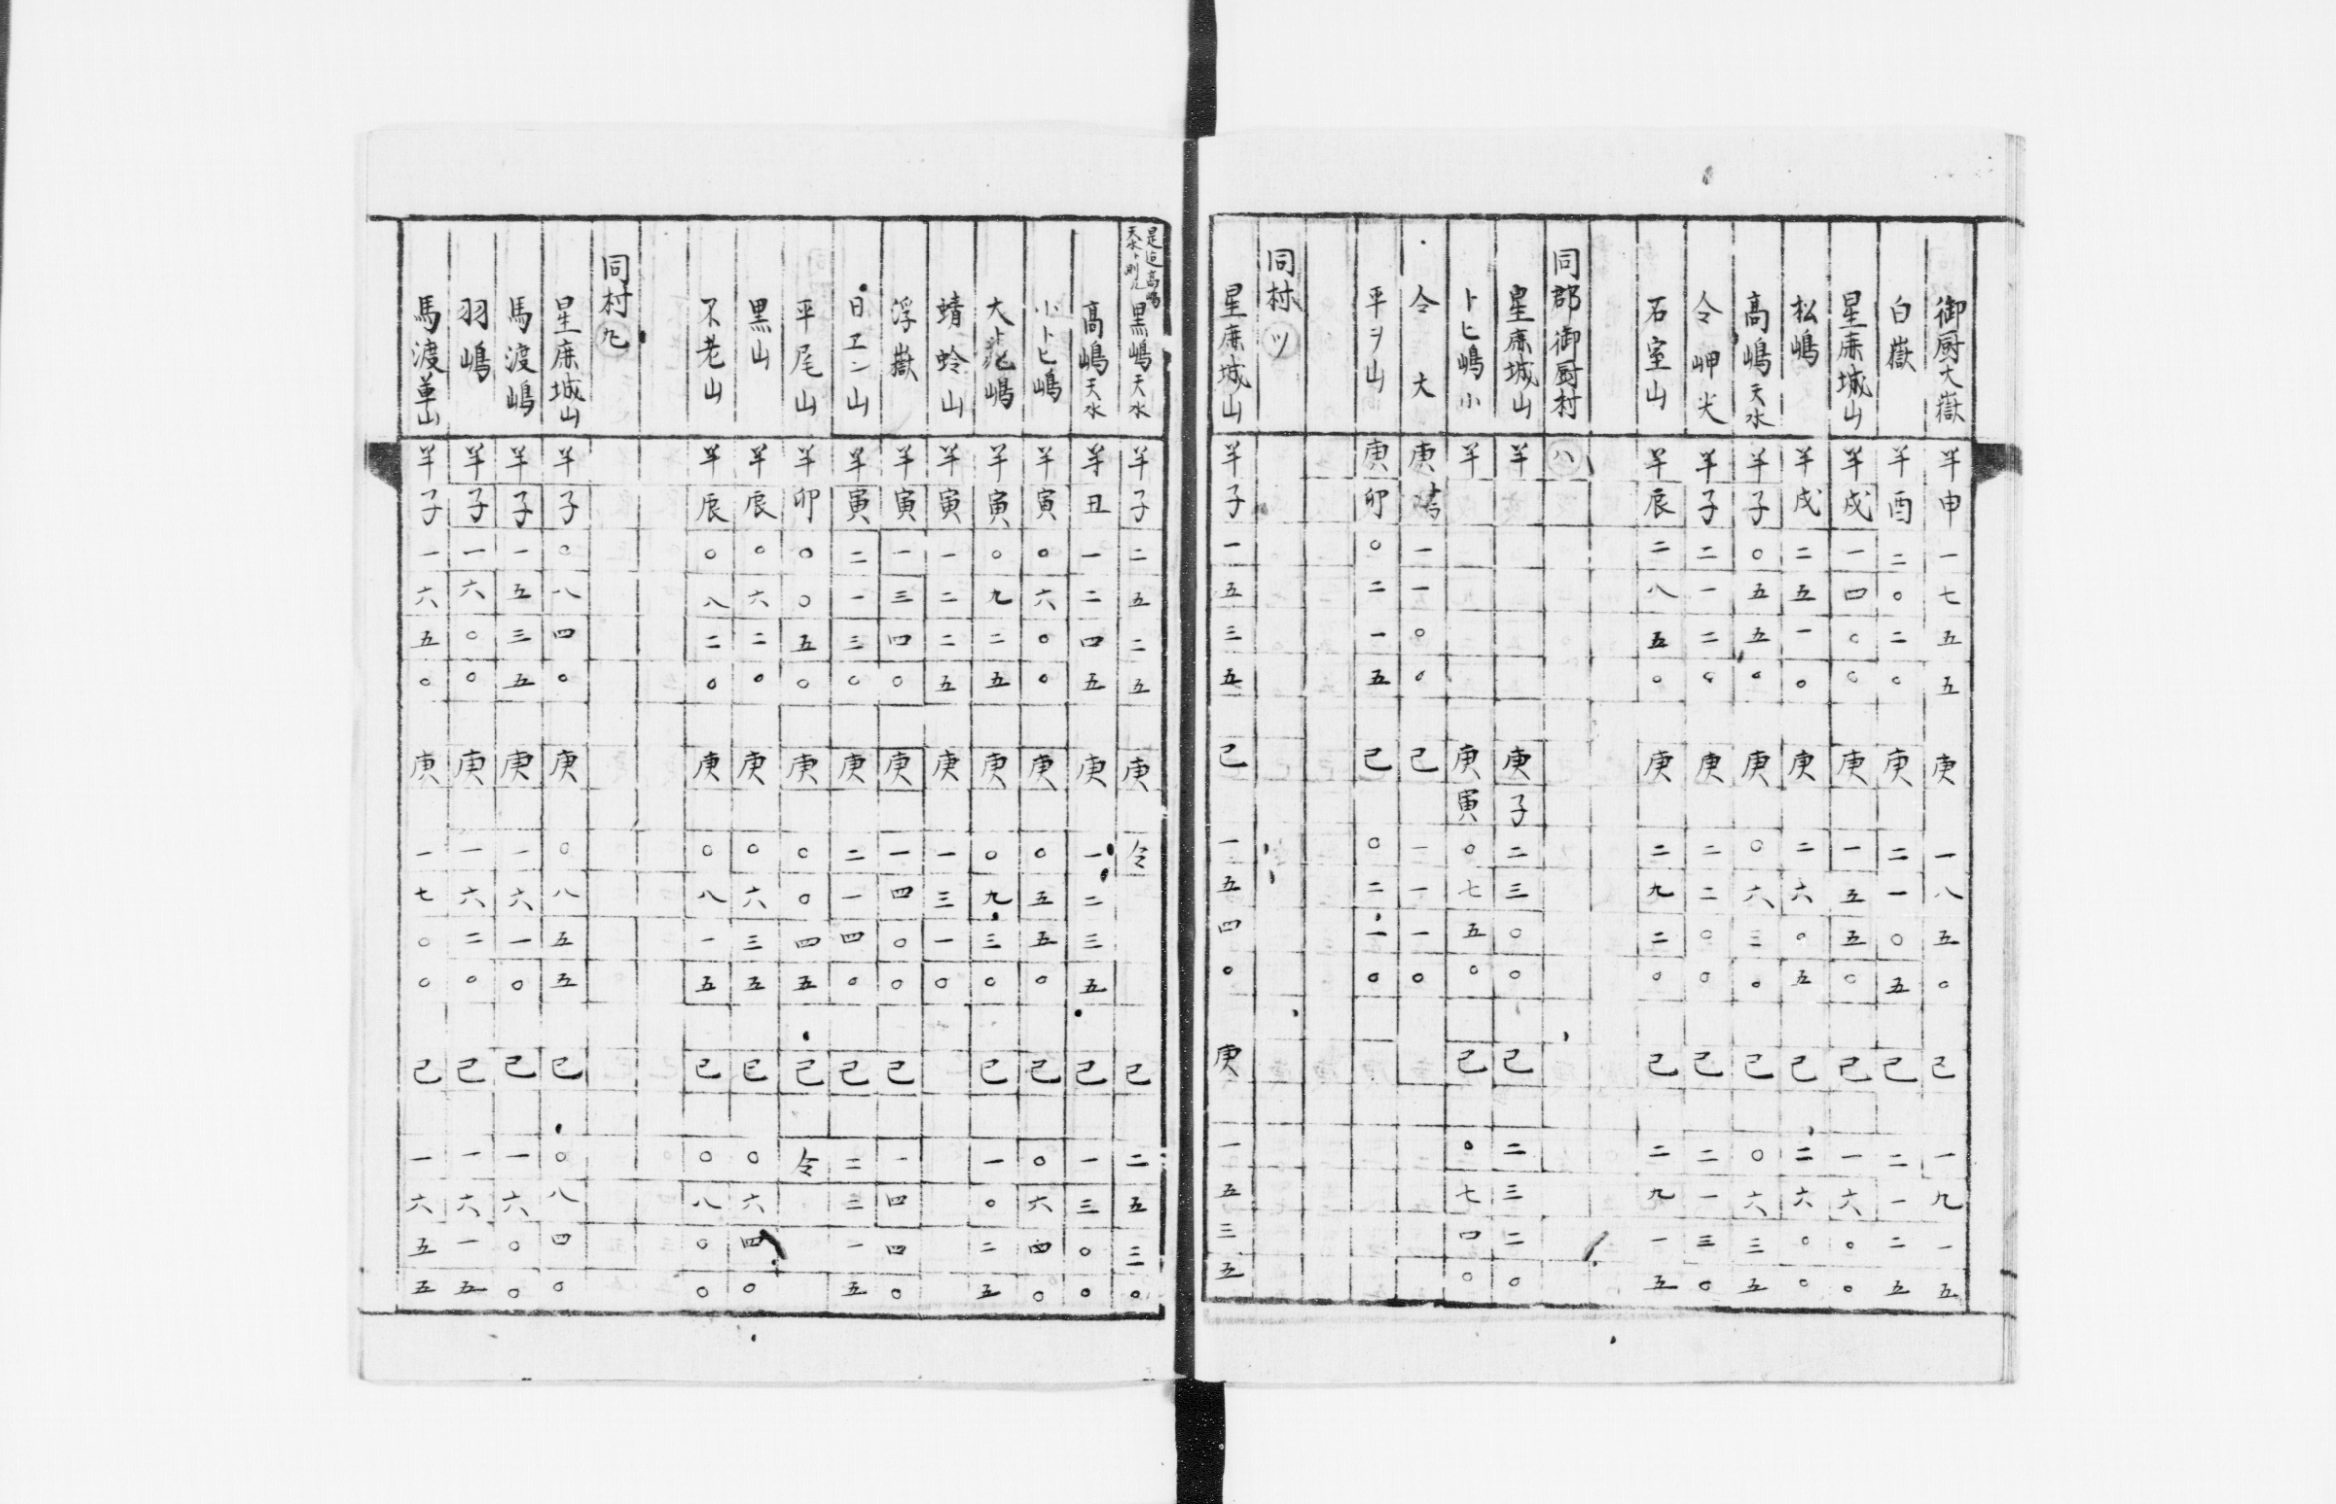 御厨大嶽 羊申一七五五 庚一八五〇 己一九一五
白嶽 羊酉二〇二〇 庚二一〇五 己二一二五
星鹿城山 羊戌一四〇〇 庚一五五〇 己一六〇〇
松嶋 羊戌二五一〇 庚二六〇五 己二六〇〇
高嶋天水 羊子〇五五〇 庚〇六三〇 己〇六三五
仝岬尖 羊子二一二〇 庚二二〇〇 己二一三〇
石室山 羊辰二八五〇 庚二九二〇 己二九一五
同郡御厨村 ㊇
星鹿城山 羊 庚子二三〇〇 己二三二〇
トヒ嶋小 羊 庚寅〇七五〇 己〇七四〇
仝大 庚 一一〇〇 己一一一〇
平ヲ山 庚卯〇二一五 己〇二一〇
同村 ツ
星鹿城山 羊子一五三五 己一五四〇 庚一五三五
是迄高嶋天水ト則ル
黒嶋天水 羊子二五二五 庚仝 己二五三〇
高嶋天水 羊丑一二四五 庚一二三五 己一三〇〇
小トヒ嶋 羊寅〇六〇〇 庚〇五五〇 己〇六四〇
大嶋 羊寅〇九二五 庚〇九三〇 己一〇二五
蜻蛉山 羊寅一二二五 庚一三一〇
浮嶽 羊寅一三四〇 庚一四〇〇 己一四四〇
日エン山 羊寅二一三〇 庚二一四〇 己二三一五
平尾山 羊卯〇〇五〇 庚〇〇四五 己仝
黒山 羊辰〇六二〇 庚〇六三五 己〇六四〇
不老山 羊辰〇八二〇 庚〇八一五 己〇八〇〇
同村 九
星鹿城山 羊子〇八四〇 庚〇八五五 己〇八四〇
馬渡嶋 羊子一五三五 庚一六一〇 己一六〇〇
羽嶋 羊子一六〇〇 庚一六二〇 己一六一五
馬渡単山 羊子一六五〇 庚一七〇〇 己一六五五